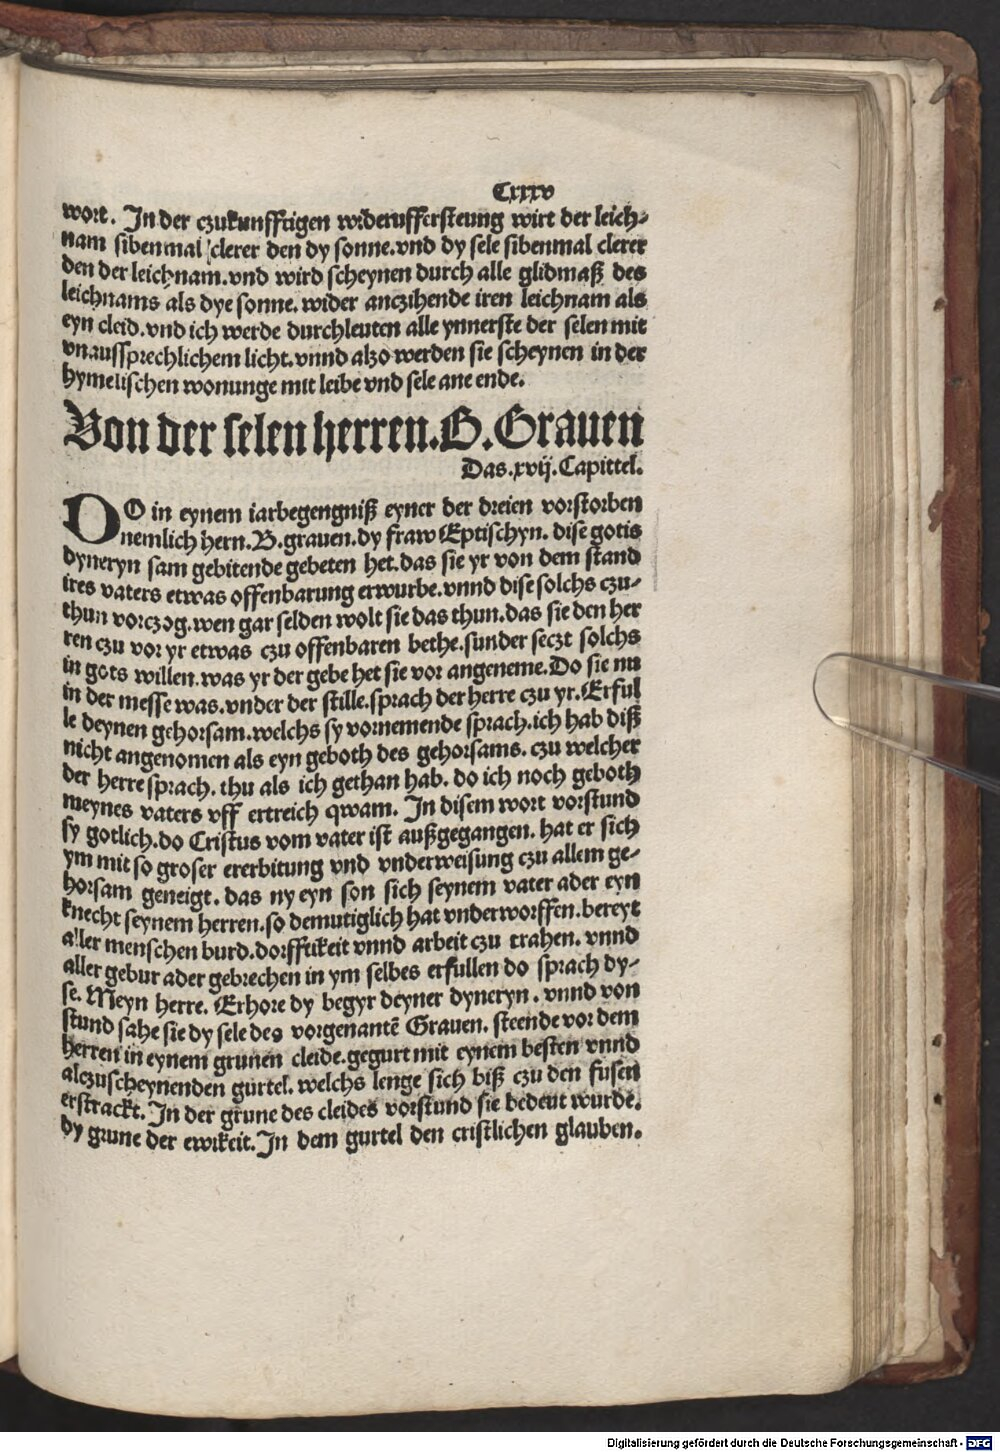 Cxxxv
wort. In der czukunfftigen wideruffersteung wirt der leich-
nam sibenmal clerer den dy sonne.vnd dy sele sibenmal clerer
den der leichnam.vnd wird scheynen durch alle glidmaß des
leichnams als dye sonne. wider anczihende iren leichnam als
eyn cleid.vnd ich werde durchleuten alle ynnerste der selen mit
vnaussprechlichem licht.vnnd alzo werden sie scheynen in der
hymelischen wonunge mit leibe vnd sele ane ende.
Von der selen herren.B.Grauen
Das.xvij.Capittel.
DO in eynem iarbegengniß eyner der dreien vorstorben
nemlich hern.B.grauen.dy fraw Eptischyn. dise gotis
dyneryn sam gebitende gebeten het.das sie yr von dem stand
ires vaters etwas offenbarung erwurbe.vnnd dise solchs czu-
thun vorczog.wen gar selden wolt sie das thun.das sie den her
ren czu vor yr etwas czu offenbaren bethe.sunder seczt solchs
in gots willen.was yr der gebe het sie vor angeneme.Do sie nu
in der messe was.vnder der stille.sprach der herre czu yr.Erful
le deynen gehorsam.welchs sy vornemende sprach.ich hab diß
nicht angenomen als eyn geboth des gehorsams. czu welcher
der herre sprach. thu als ich gethan hab. do ich noch geboth
meynes vaters vff ertreich qwam. In disem wort vorstund
sy gotlich.do Cristus vom vater ist außgegangen. hat er sich
ym mit so groser ererbitung vnd vnderweisung czu allem ge-
horsam geneigt. das ny eyn son sich seynem vater ader eyn
knecht seynem herren.so demutiglich hat vnderworffen.bereyt
aller menschen burd.dorfftikeit vnnd arbeit czu trahen. vnnd
aller gebur ader gebrechen in ym selbes erfullen do sprach dy-
se. Meyn herre. Erhore dy begyr deyner dyneryn. vnnd von
stund sahe sie dy sele des vorgenantē Grauen. steende vor dem
herren in eynem grunen cleide.gegurt mit eynem besten vnnd
alczuscheynenden gurtel. welchs lenge sich biß czu den fusen
erstrackt. In der grune des cleides vorstund sie bedeut wurde.
dy grune der ewikeit.In dem gurtel den cristlichen glauben.
Digitalisierung gefördert durch die Deutsche Forschungsgemeinschaft - DFG